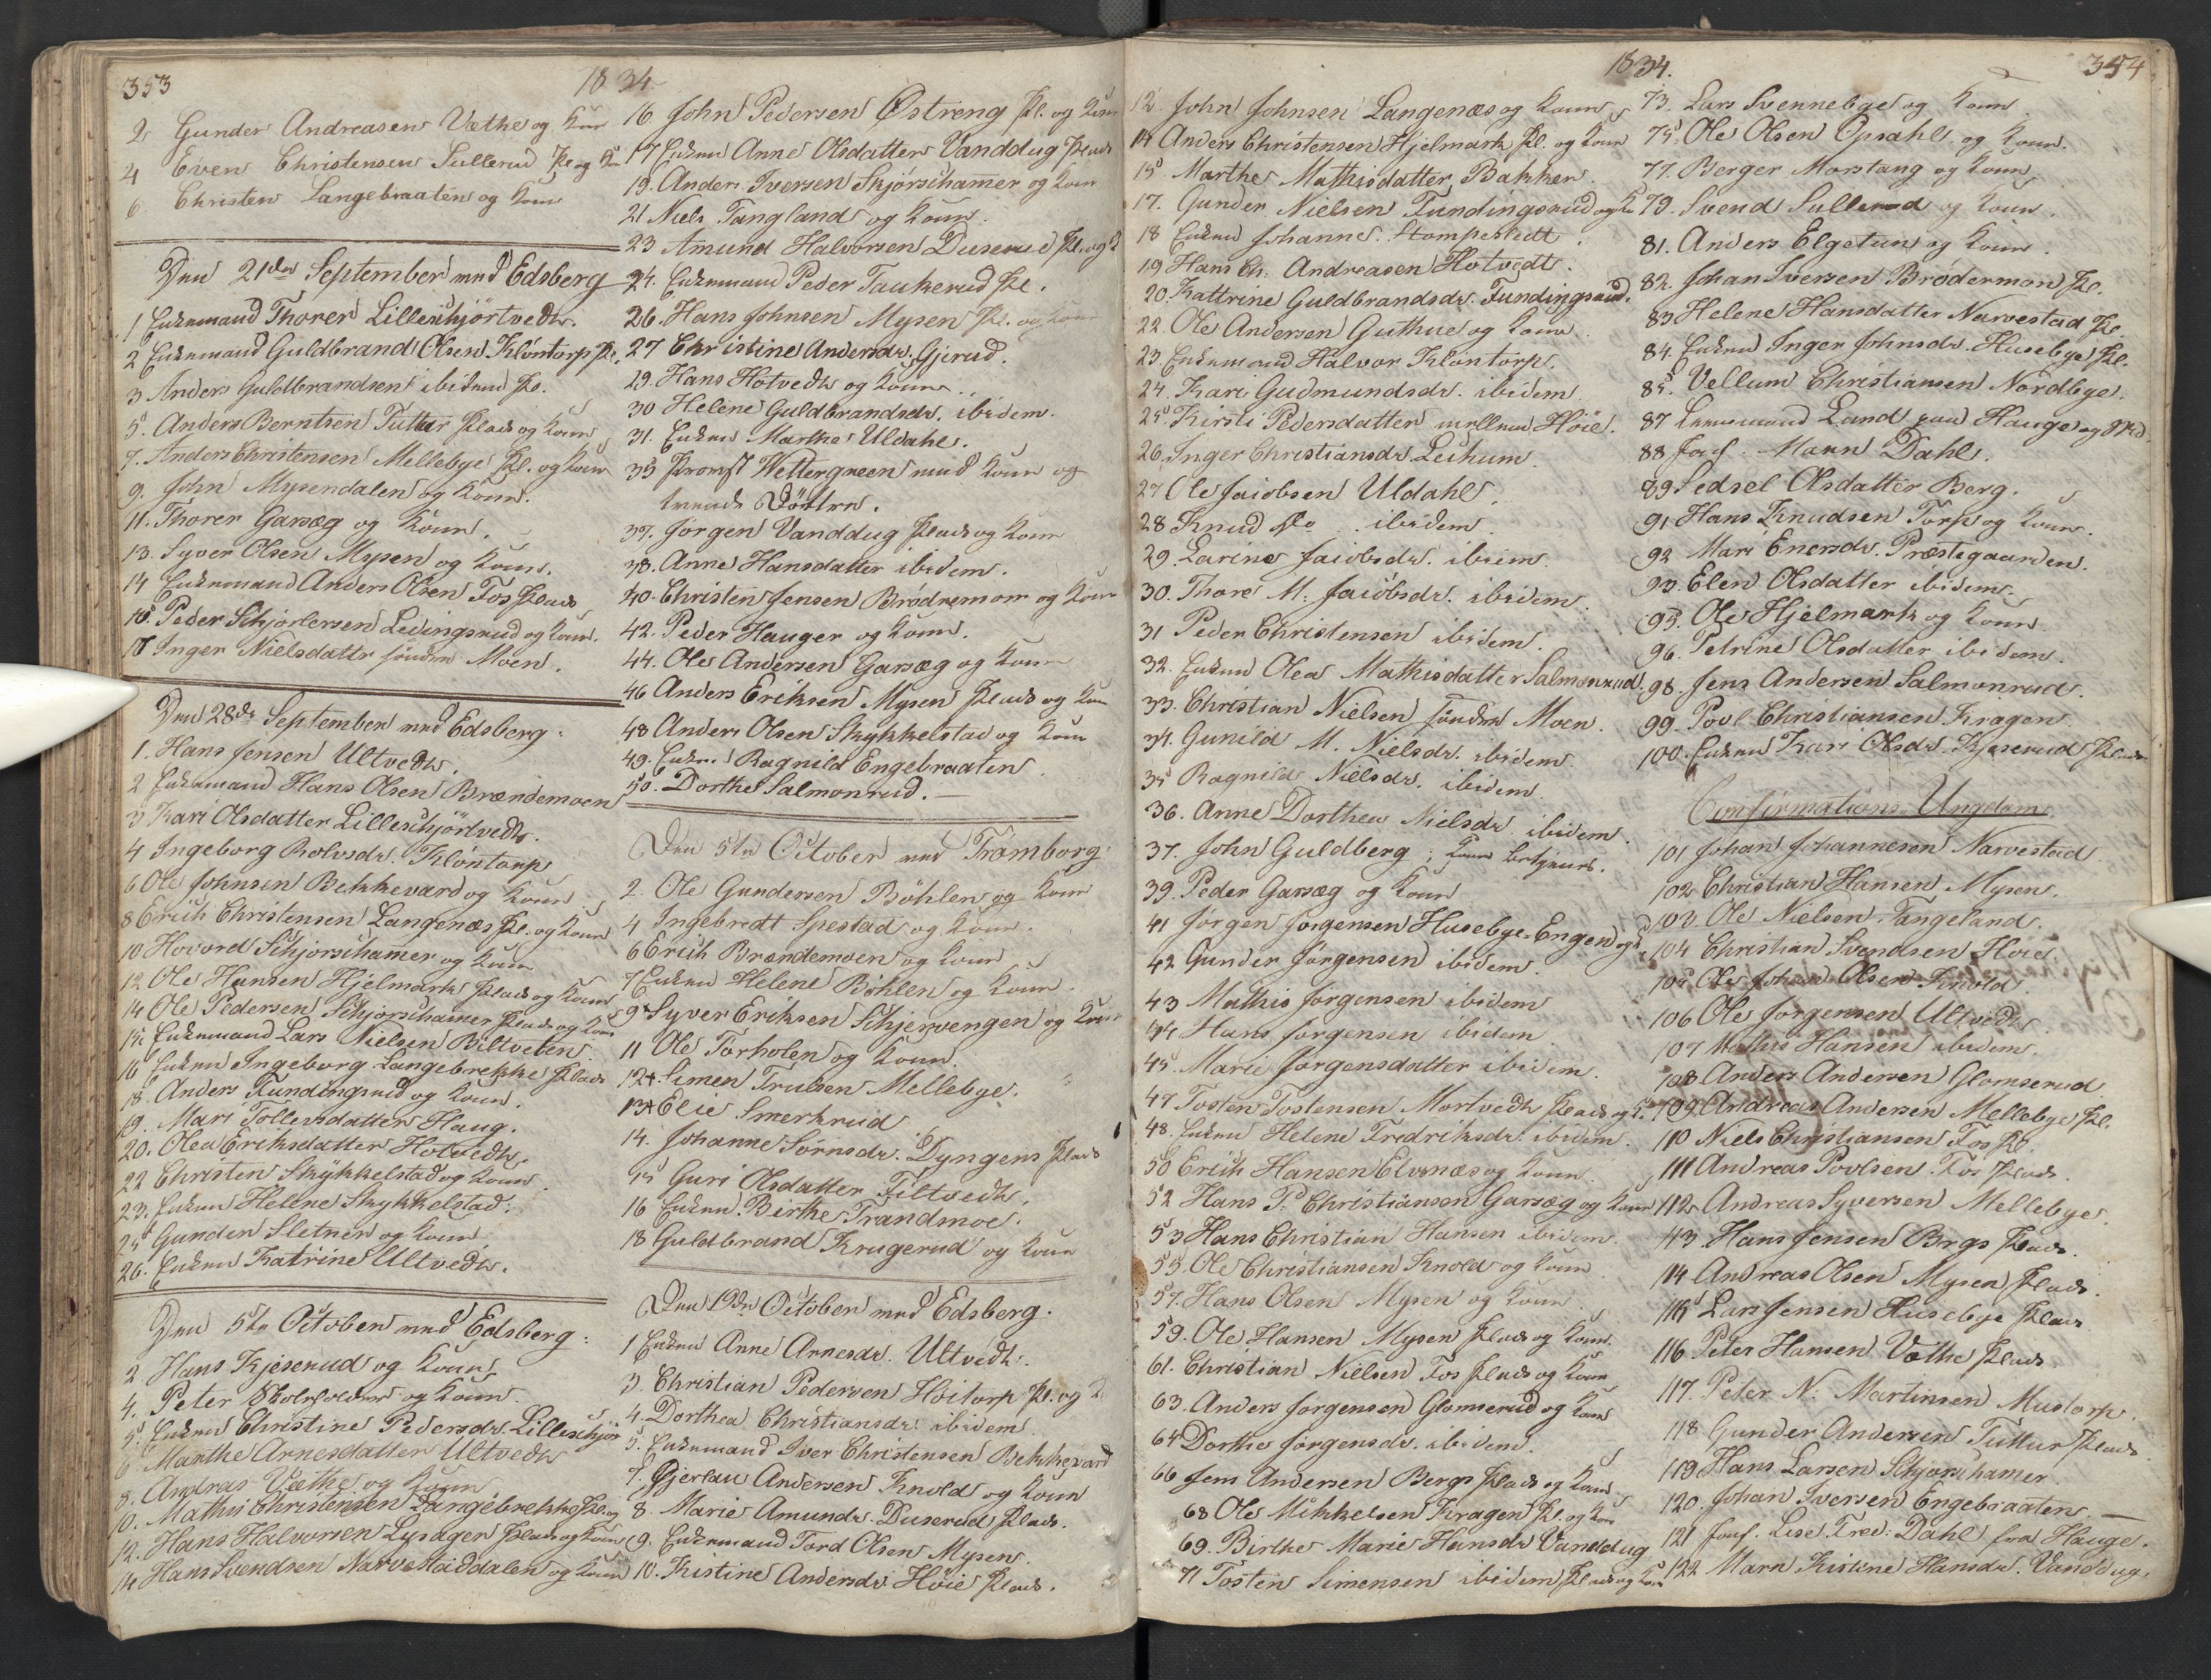 353
1834
2 Gunder Andreasen Væthe og Kone
4 Even Christensen Sullerud Pl. og K
6 Christen Langebraaten og Kone
Den 21de September ved Edsberg
1 Enkemand Thorer Lilleschjörtvedt.
2 Enkemand Guldbrand Olsen Klöntorp Pl.
3 Anders Guldbrandsen ibidem Pl.
5. Anders Berntsen Tuttur Plads og Kone
7. Anders Christensen Mellebye Pl. og Kone
9. John Mysendalen og Kone.
11. Thorer Garsæg og Kone.
13. Syver Olsen Mysen og Kone.
14 Enkemand Anders Olsen Fos Plads
16. Peder Schjorlersen Ledingsrud og Kone.
17 Inger Nielsdattr söndre Moen.
Den 28de September ved Edsberg.
1. Hans Jensen Ultvedt.
2 Enkemand Hans Olsen Brændemoen
3 Kari Olsdatter Lilleschjörtvedt.
4 Ingeborg Rolvsdr. Klöntorp
6 Ole Johnsen Bekkevard og Kone
8 Erich Christensen Langenæs Pl. og Kone
10 Hovord Schjorschamer og Kone
12 Ole Hansen Hjelmark Plads og Kone
14 Ole Pedersen Schjorschamer Plads og Kone
15 Enkemand Lars Nielsen Biltveten
16 Enken Ingeborg Langebrekke Plads
18. Anders Fundingsrud og Kone.
19. Mari Tollevsdatter Haug.
20. Olea Eriksdatter Hotvedt.
22 Christen Skykkelstad og Kone
23. Enken Helene Skykkelstad.
25 Gunder Sletner og Kone
26. Enken Katrine Ultvedt.
Den 5te October ved Edsberg.
2 Hans Kjeserud og Kone
4. Peter Skoleholder og Kone.
5. Enken Christine Pedersdr. Lilleschjor
6 Marthe Arnesdatter Ultvedt
8. Andras Væthe og Kone
10. Mathis Christensen Langebrekke Pl. og
12. Hans Halvorsen Lysager Plads og Kone
14 Hans Svendsen Narvestaddalen og Kone
16 John Pedersen Østreng Pl. og Kone
17 Enken Anne Olsdatter Vanddug Plads
19. Anders Iversen Skjörschamer og Kone
21 Niels Tangland og Kone.
23 Amund Halvorsen Duserud Pl. og K
24. Enkemand Peder Taukerud Pl.
26. Hans Johnsen Mysen Pl. og Kone
27 Christine Andersdr. Gjerud.
29. Hans Hotvedt og Kone
30 Helene Guldbrandsdr. ibidem.
31. Enken Marthe Uldahl.
35 Proust Wettergreen med Kone og
trende Döttre.
37. Jörgen Vanddug Plads og Kone
38. Anne Hansdatter ibidem.
40. Christen Jensen Brödremom og Kone
42. Peder Hauger og Kone.
44. Ole Andersen Garsæg og Kone
46 Anders Eriksen Mysen Plads og Kone
48 Anders Olsen Skykkelstad og Kone
49. Enken Ragnild Engebraaten
50. Dorthe Salmonrud.
Den 5te October ved Trömborg.
2. Ole Gundersen Böhlen og Kone
4 Ingebredt Spestad og Kone.
6 Erich Brændemoen og Kone
7 Enken Helene Böhlen og Kone.
9 Syver Eriksen Schjervengen og Kone
11 Ole Torholen og Kone
12. Simen Trulsen Mellebye.
13 Elie Smerkrud
14. Johanne Sörnsdr. Dyngens Plads
15 Guri Olsdatter Filtvedt.
16 Enken Birthe Trandmoe.
18 Guldbrand Krugerud og Kone
Den 19de October ved Edsberg.
1 Enken Anne Arnesdr. Ultvedt.
3. Christian Pedersen Hoitorp Pl. og K
4. Dorthea Christiansdr. ibidem
5. Enkemand Iver Christensen Bekkevard
7. Gjerlau Andersen Knold og Kone
8. Marie Amundr. Duserud Plads.
9. Enkemand Tord Olsen Mysen.
10. Kistine Andersdr. Höie Plads.
1834.
354
12 John Johnsen Langenæs og Kone
14 Anders Christensen Hjelmark Pl. og Kone
15 Marthe Mathisdatter Bakken
17. Gunder Nielsen Fundingsrud og K
18 Enken Johanne Stompestedt.
19 Hans Ch: Andreasen Hotvedt.
20. Kattrine Guldbrandsdr. Fundingsrud.
22. Ole Andersen Guthue og Kone
23. Enkemand Halvor Klöntorp.
24. Kari Gudmundsdr. ibidem
25 Kirsti Pedersdatter mellem Höie.
26 Inger Christiansdr. Leikum
27 Ole Jaiobsen Uldahl.
28 Knud do. ibidem.
29. Larine Jaiobsdr. ibiem.
30. Thore M. Jaiobsdr. ibidem
31 Peder Christensen ibidem.
32. Enken Olea Mathisdatter Salmonrud.
33. Christian Nielsen söndre Moen.
34. Gunild M. Nielsdr. ibidem.
35 Ragnild Nielsdr. ibidem.
36. Anne Dorthea Nielsdr. ibidem.
37. John Guldberg, Kone betjent.
39. Peder Garsæg og Kone
41 Jörgen Jörgensen Husebye-Engen og K
42 Gunder Jörgensen ibidem.
43 Mathis Jörgensen ibidem
44 Hans Jörgensen ibidem
45 Marie Jörgensdatter ibidem.
47 Tosten Tostensen Mortvedt Plads og K.
48. Enken Helene Fredriksdr. ibidem.
50 Erich Hansen Elvenæs og Kone.
52 Hans P. Christiansen Garsæg og Kone
53 Hans Christian Hansen ibidem.
55. Ole Christiansen Knold og Kone
57. Hans Olsen Mysen og Kone
59. Ole Hansen Mysen Plads og Kone.
61. Christian Nielsen Fos Plads og Kone
63. Anders Jörgensen Glomserud og Kone
64 Dorthe Jörgensdr. ibidem.
66 Jens Andersen Bergs Plads og Kone
68 Ole Mikkelsen Kragen Pl. og Kone
69. Birthe Marie Hansdr. Vanddug
71 Tosten Simensen ibidem Plads og Kone
73. Lars Svennebye og Kone
75. Ole Olsen Opsahl og Kone.
77. Berger Morstang og Kone
79. Svend Sullerud og Kone.
81. Anders Elgetun og Kone.
82. Johan Iversen Brödermon Pl.
83 Helene Hansdatter Narvestad Pl.
84. Enken Inger Johnsdr. Husebye Pl.
85. Vellum Christiansen Nordbye.
87 Lensmand Land paa Hauge og Md.
88 Jomf. Maren Dahl.
89 Sedsel Olsdatter Berg.
91 Hans Knudsen Torp og Kone.
92 Mari Enersdr. Præstegaarden.
93. Elen Olsdatter ibidem.
95. Ole Hjelmark og Kone
96. Petrine Olsdatter ibidem.
98. Jens Andersen Salmonrud.
99. Povl Christiansen Kragen.
100. Enken Kari Olsdr. Kjeserud Plads
Confirmations-Ungdom
101 Johan Johannesen Narvestad
102 Christian Hansen Mysen.
103. Ole Nielsen Tangeland.
104 Christian Svendsen Höie.
105 Ole Johan Olsen Knold.
106 Ole Jörgensen Ultvedt.
107 Mathis Hansen ibidem.
108 Anders Andersen Glomserud
109. Andreas Andersen Mellebye Pl.
110 Niels Christiansen Fos Pl.
111 Andreas Povlsen Fos Plads.
112 Andreas Syversen Mellebye.
113 Hans Jensen Brgs Plads.
114 Andreas Olsen Mysen Plads.
115 Lars Jensen Husebye Plads
116 Peter Hansen Væthe Plads
117. Peter N. Martinsen Mustorp.
118 Gunder Andersen Tuttur Plads
119 Hans Larsen Schjorschamer
120. Johan Iversen Engebraaten.
121 Jomf. Lise Fred: Dahl fra Hauge.
122 Marn Kistine Hansdr. Vanddug.